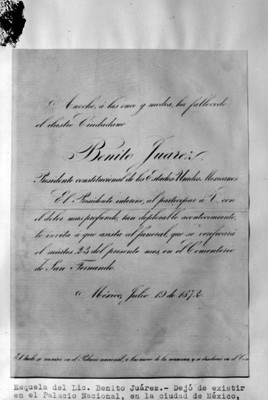 Anoche, á las once y media, ha fallecido
el ilustre Ciudadano
Benito Juarez.
Presidente constitucional de los Estados Unidos Mexicanos
El Presidente interino, al participar á V. con
el dolor mas profundo, tan deplorable acontecimiento,
lo invita á que asista al funeral, que se verificará
el martes 23 del presente mes, en el Cementerio
de San Fernando.
México, Julio 19 de 1872.
El duelo se reunirá en el Palacio nacional, á las nueve de la mañana, y se despedirá en el
Esquela del Lic. Benito Juárez.- Dejó de existir
en el Palacio Nacional, en la ciudad de México,